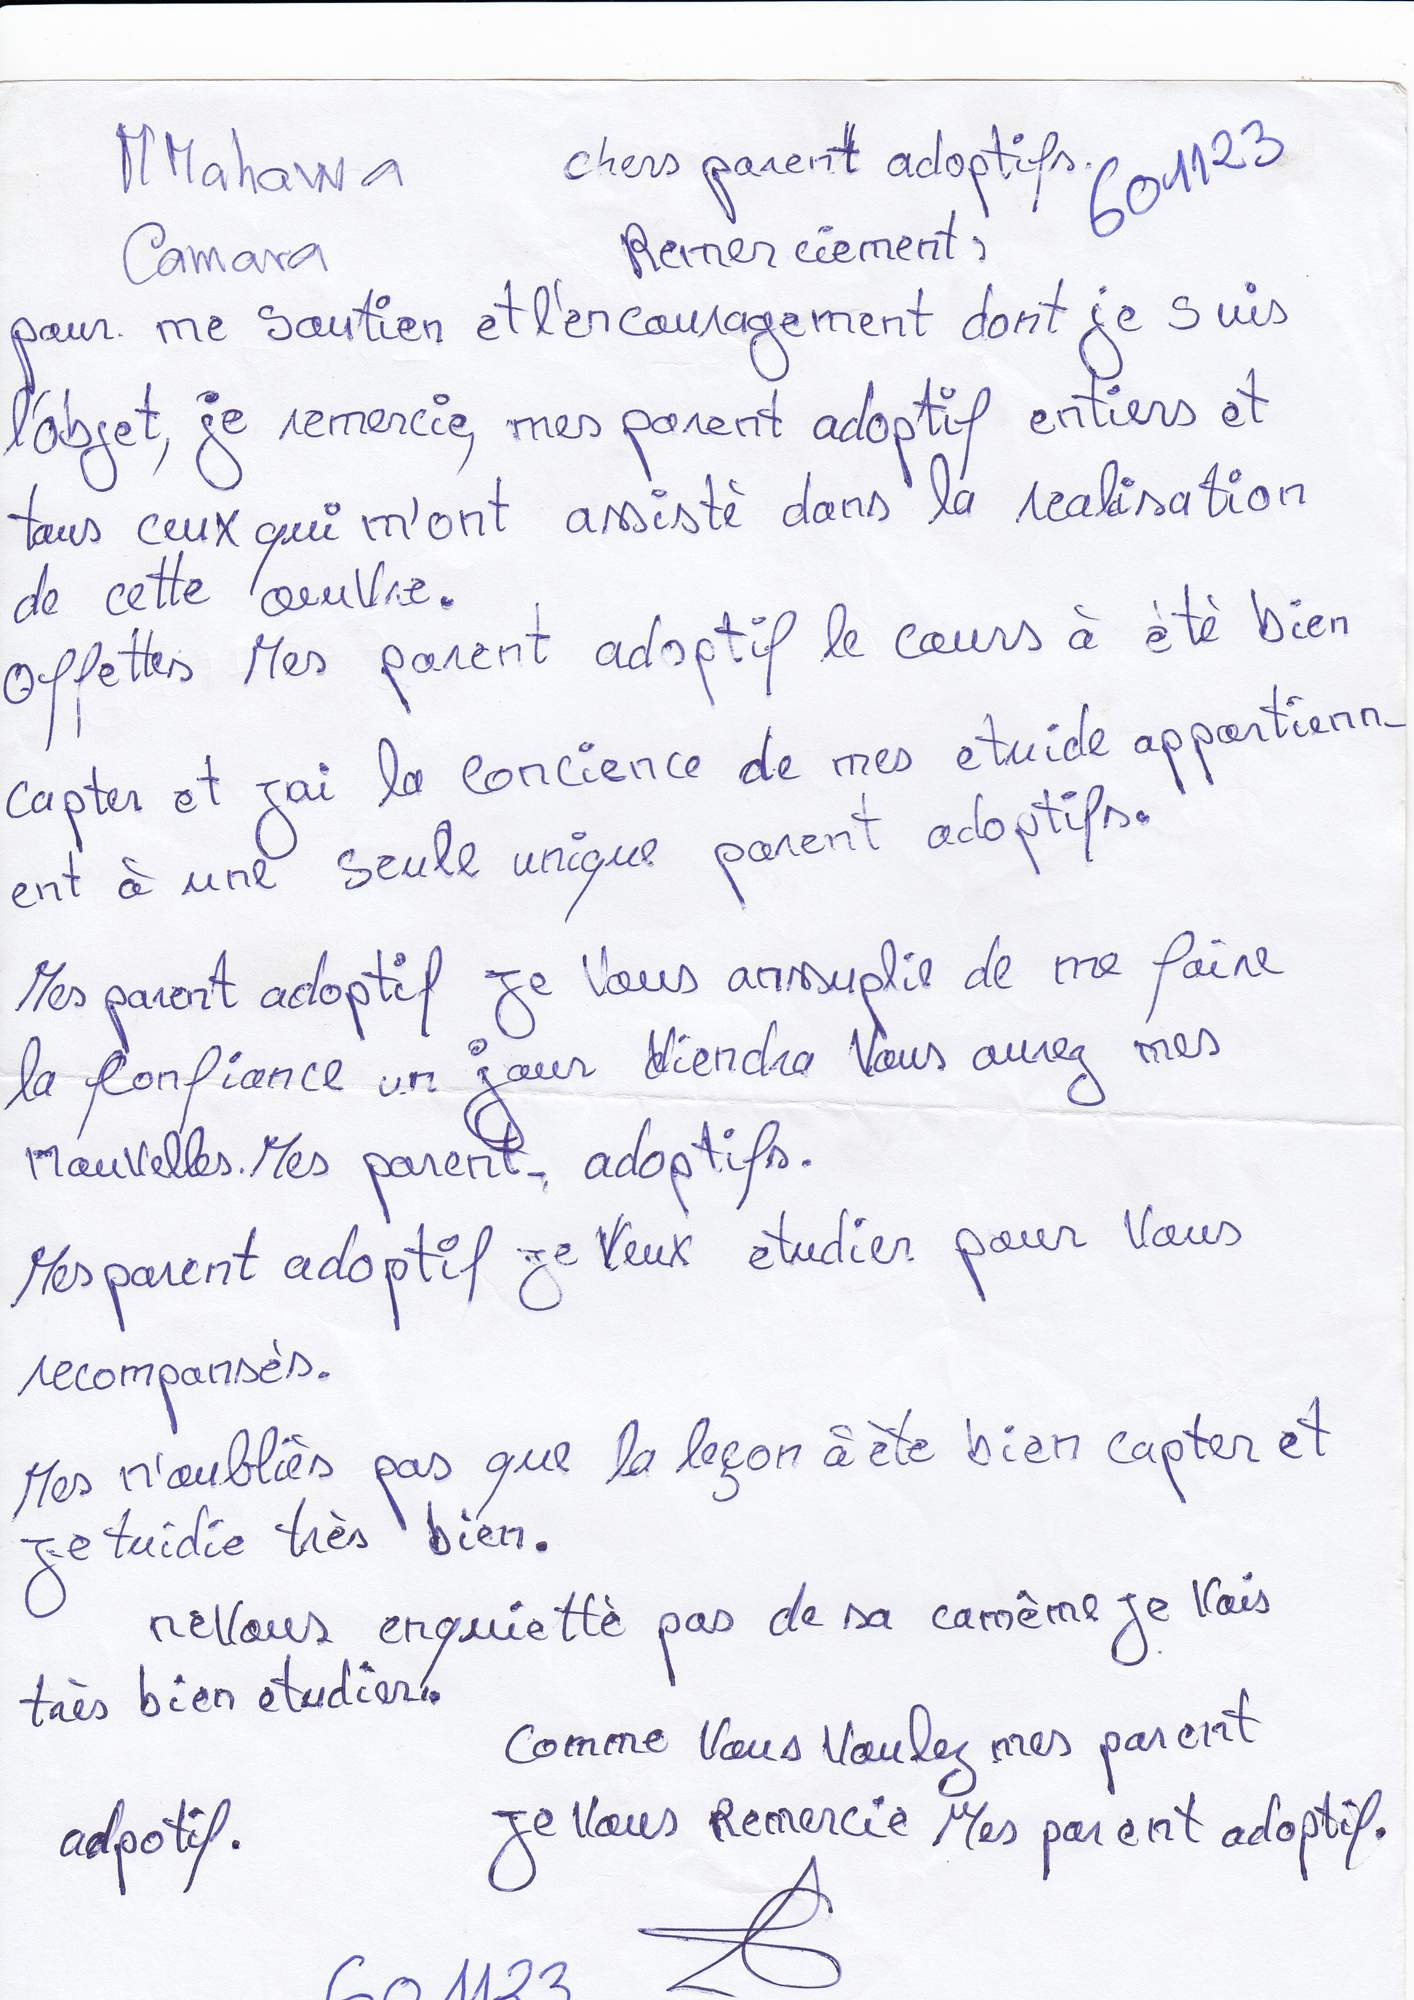 M'Mahawa chers parent adoptifs. 601123
Camara Remerciement,
pour me soutien et l'encouragement dont je suis
l'objet, je remercie, mes parent adoptif entiers et
tous ceux qui m'ont assistè dans la realisation
de cette oeuvre.
Offettes Mes parent adoptif le cours à ètè bien
capter et j'ai la concience de mes etuide appartienn-
ent à une seule unique parent adoptifs.
Mes parent adoptif je vous anssuplie de me faire
la confiance un jour viendra vous aurez mes
nouvelles. Mes parent- adoptifs.
Mes parent adoptif je veux ètudier pour vous
recompansès.
Mes n'oubliès pas que la leçon à ète bien capter et
je tuidie très bien.
ne vous enquiettè pas de sa camême je vais
très bien etudier.
Comme vous voulez mes parent
adpotif. je vous Remercie Mes parent adoptif.
601123